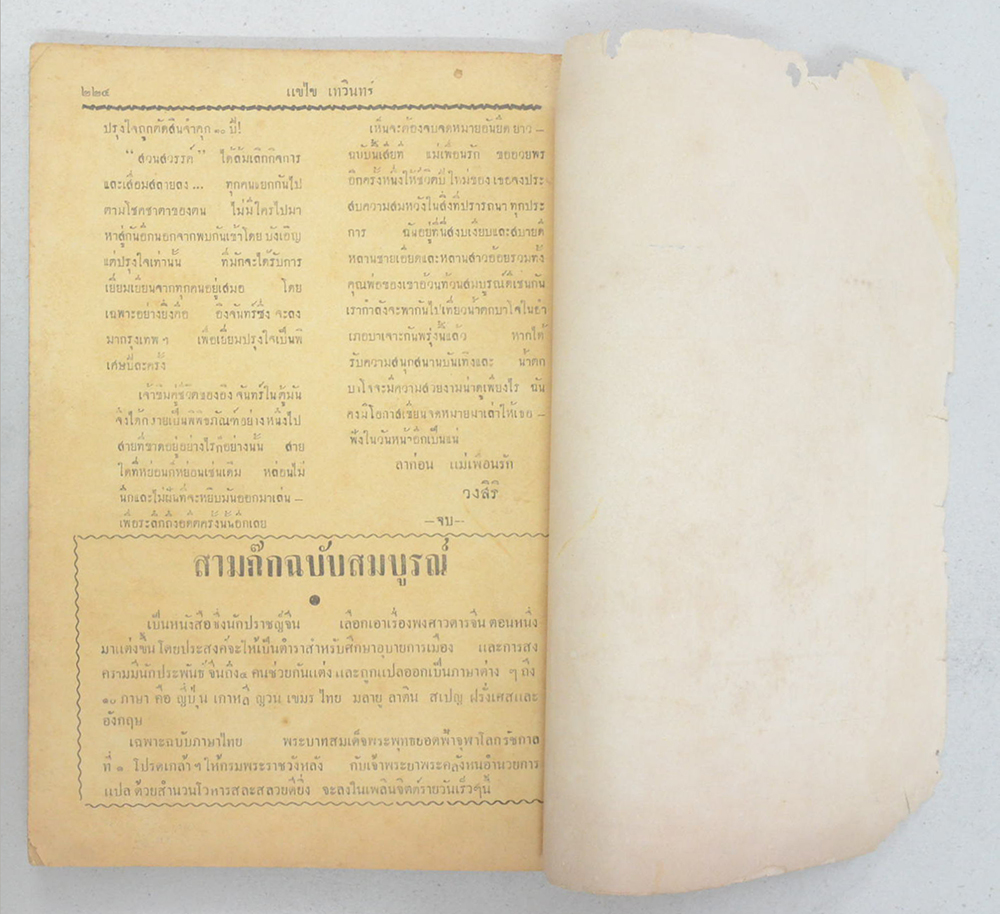 ๒๒๔
แขไข เทวินทร์
ปรุงใจถูกตัดสินจำคุก ๑๐ ปี!
"สวนสวรรค์" ได้ล้มเลิกกิจการ
และเสื่อมสลายลง ... ทุกคนแยกกันไป
ตามโชคชาตาของตน ไม่มีใครไปมา
หาสู่กันอีกนอกจากพบกันเข้าโดยบังเอิญ
แต่ปรุงใจเท่านั้น ที่มักจะได้รับการ
เยี่ยมเยียนจากทุกคนอยู่เสมอ โดย
เฉพาะอย่างยิ่งคือ อิงจันทร์ซึ่งจะลง
มากรุงเทพฯ เพื่อเยี่ยมปรุงใจเป็นพิ
เศษปีละครั้ง
เจ้าขิมคู่ชีวิตของอิงจันทร์ในตู้มัน
จึงได้กลายเป็นพิพิธภัณฑ์อย่างหนึ่งไป
สายที่ขาดอยู่อย่างไรก็อย่างนั้น สาย
ใดที่หย่อนก็หย่อนเช่นเดิม หล่อนไม่
นึกและไม่ฝันที่จะหยิบมันออกมาเล่น –
เพื่อระลึกถึงอดีตครั้งนั้นอีกเลย
เห็นจะต้องจบจดหมายอันยืดยาว –
ฉบับนี้เสียที แม่เพื่อนรัก ขออวยพร
อีกครั้งหนึ่งให้ชีวิตปีใหม่ของเธอจงประ
สบความสมหวังในสิ่งที่ปรารถนาทุกประ
การ ฉันอยู่ที่นี่สงบเงียบและสบายดี
หลานชายเอียดและหลานสาวอ้อยรวมทั้ง
คุณพ่อของเขาอ้วนท้วนสมบูรณ์ดีเช่นกัน
เรากำลังจะพากันไปเที่ยวน้ำตกบาโจในอำ
เภอบาเจาะกันพรุ่งนี้แล้ว หากได้
รับความสนุกสนานบันเทิงและ น้ำตก
บาโจจะมีความสวยงามน่าดูเพียงไร ฉัน
คงมีโอกาสเขียนจดหมายมาเล่าให้เธอ –
ฟังในวันหน้าอีกเป็นแน่
ลาก่อน แม่เพื่อนรัก
วงสิริ
—จบ—
สามก๊กฉบับสมบูรณ์
เป็นหนังสือซึ่งนักปราชญ์จีน เลือกเอาเรื่องพงศาวดารจีนตอนหนึ่ง
มาแต่งขึ้นโดยประสงค์จะให้เป็นตำราสำหรับศึกษาอุบายการเมือง และการสง
ครามมีนักประพันธ์จีนถึง๔ คนช่วยกันแต่ง และถูกแปลออกเป็นภาษาต่าง ๆ ถึง
๑๐ ภาษา คือ ญี่ปุ่น เกาหลี ญวน เขมร ไทย มลายู ลาติน สเปญ ฝรั่งเศสและ
อังกฤษ
เฉพาะฉบับภาษาไทย พระบาทสมเด็จพระพุทธยอดฟ้าจุฬาโลกรัชกาล
ที่ ๑ โปรดเกล้าฯให้กรมพระราชวังหลัง กับเจ้าพระยาพระคลังหนอำนวยการ
แปล ด้วยสำนวนโวหารสละสลวยดียิ่ง จะลงในเพลินจิตต์รายวันเร็วๆนี้